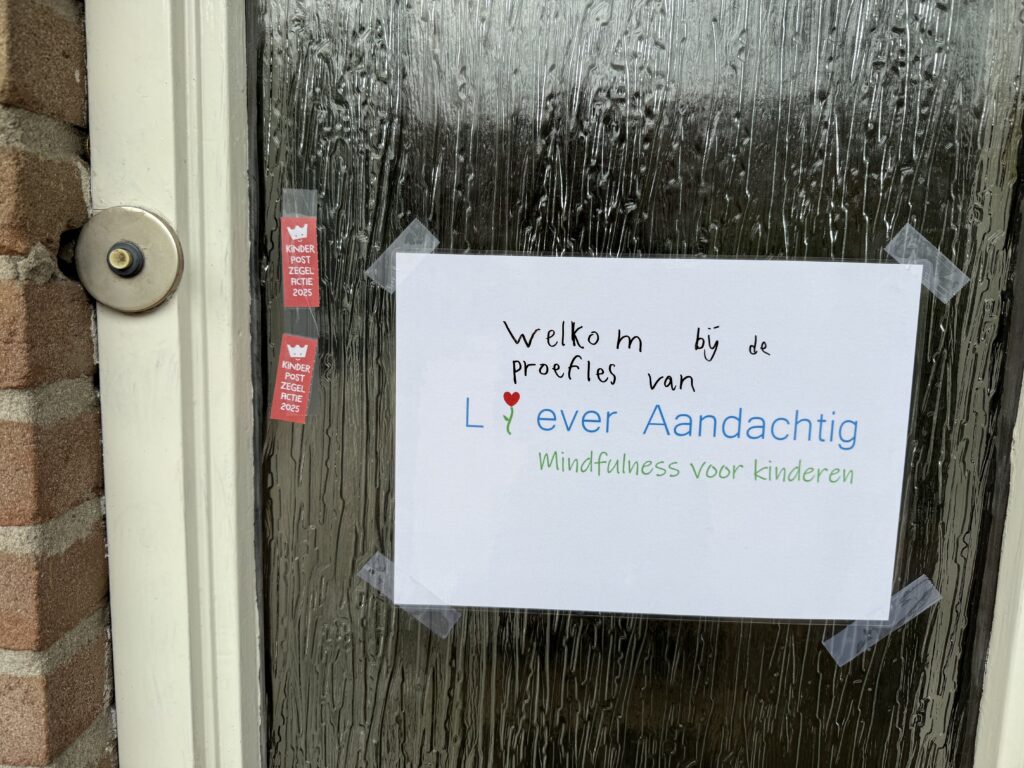 KINDER
POST
ZEGEL
ACTIE
2025
KINDER
POST
ZEGEL
ACTIE
2025
Welkom bij de
proefles van
Liever Aandachtig
Mindfulness voor kinderen